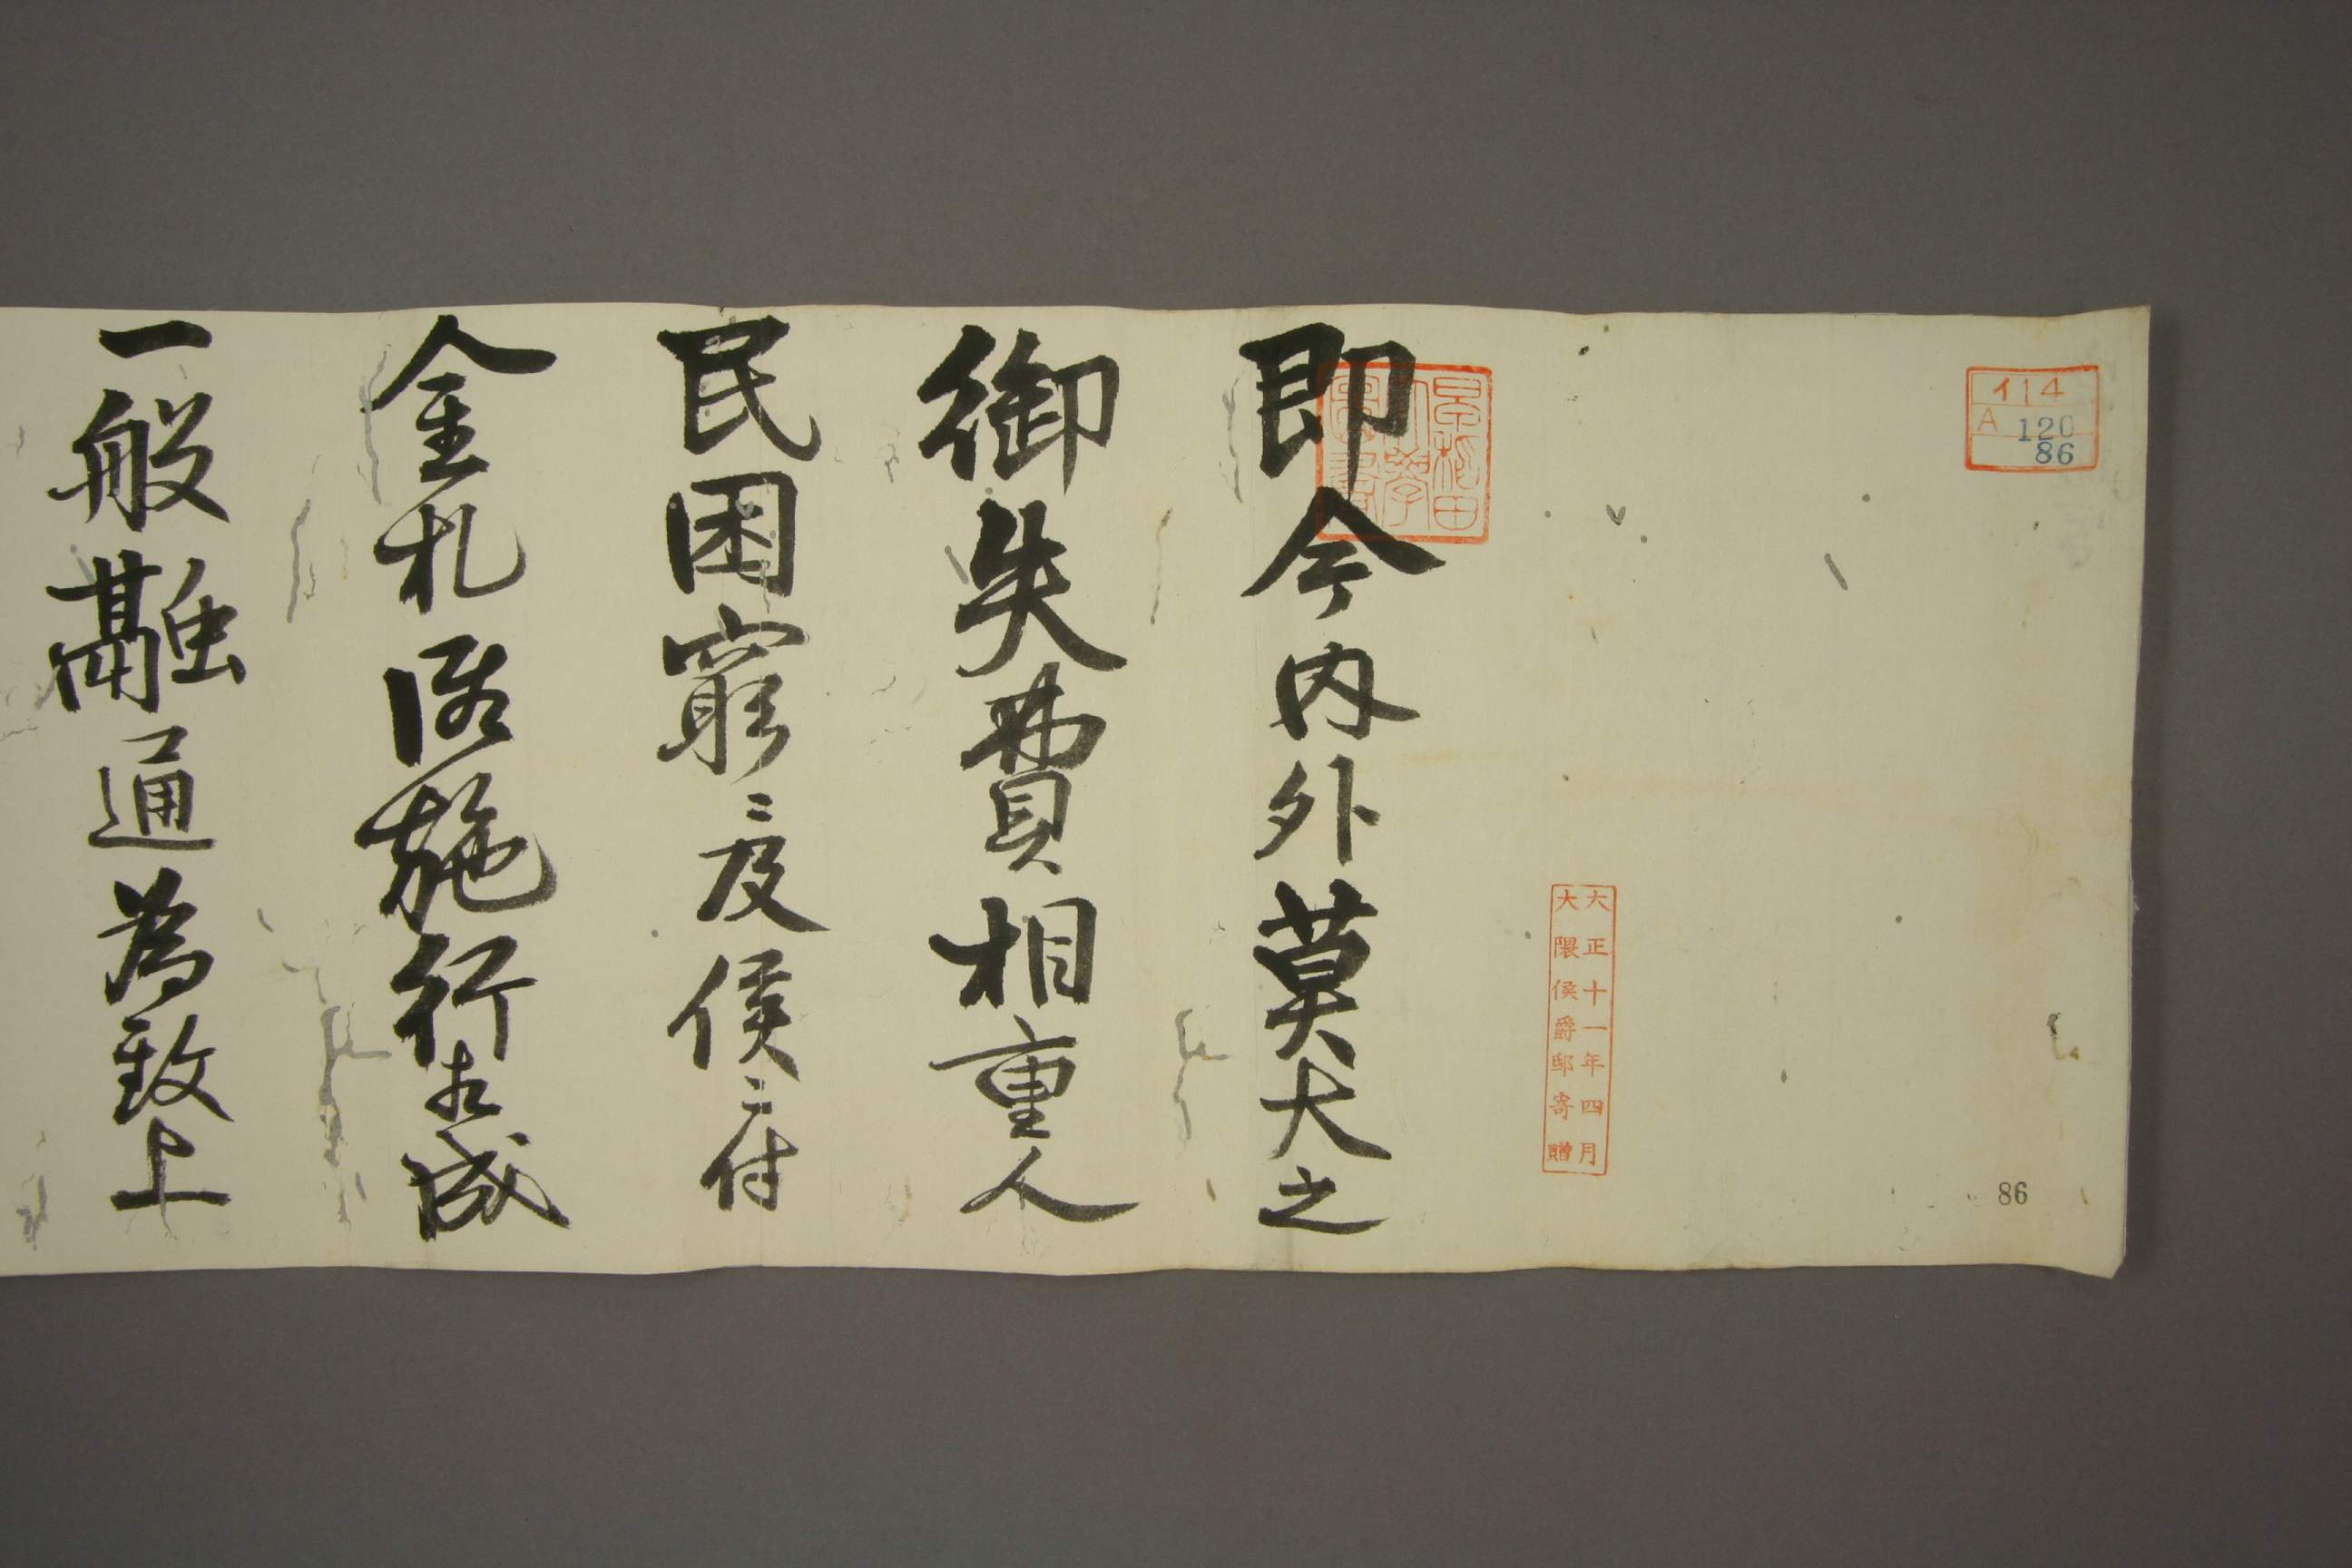 イ14
A 120
86
大正十一年四月
大隈侯爵邸寄贈
86
即今内外莫大之
御失費相重人
民困窮ニ及候ニ付
金札御施行相成
一般融通為致上